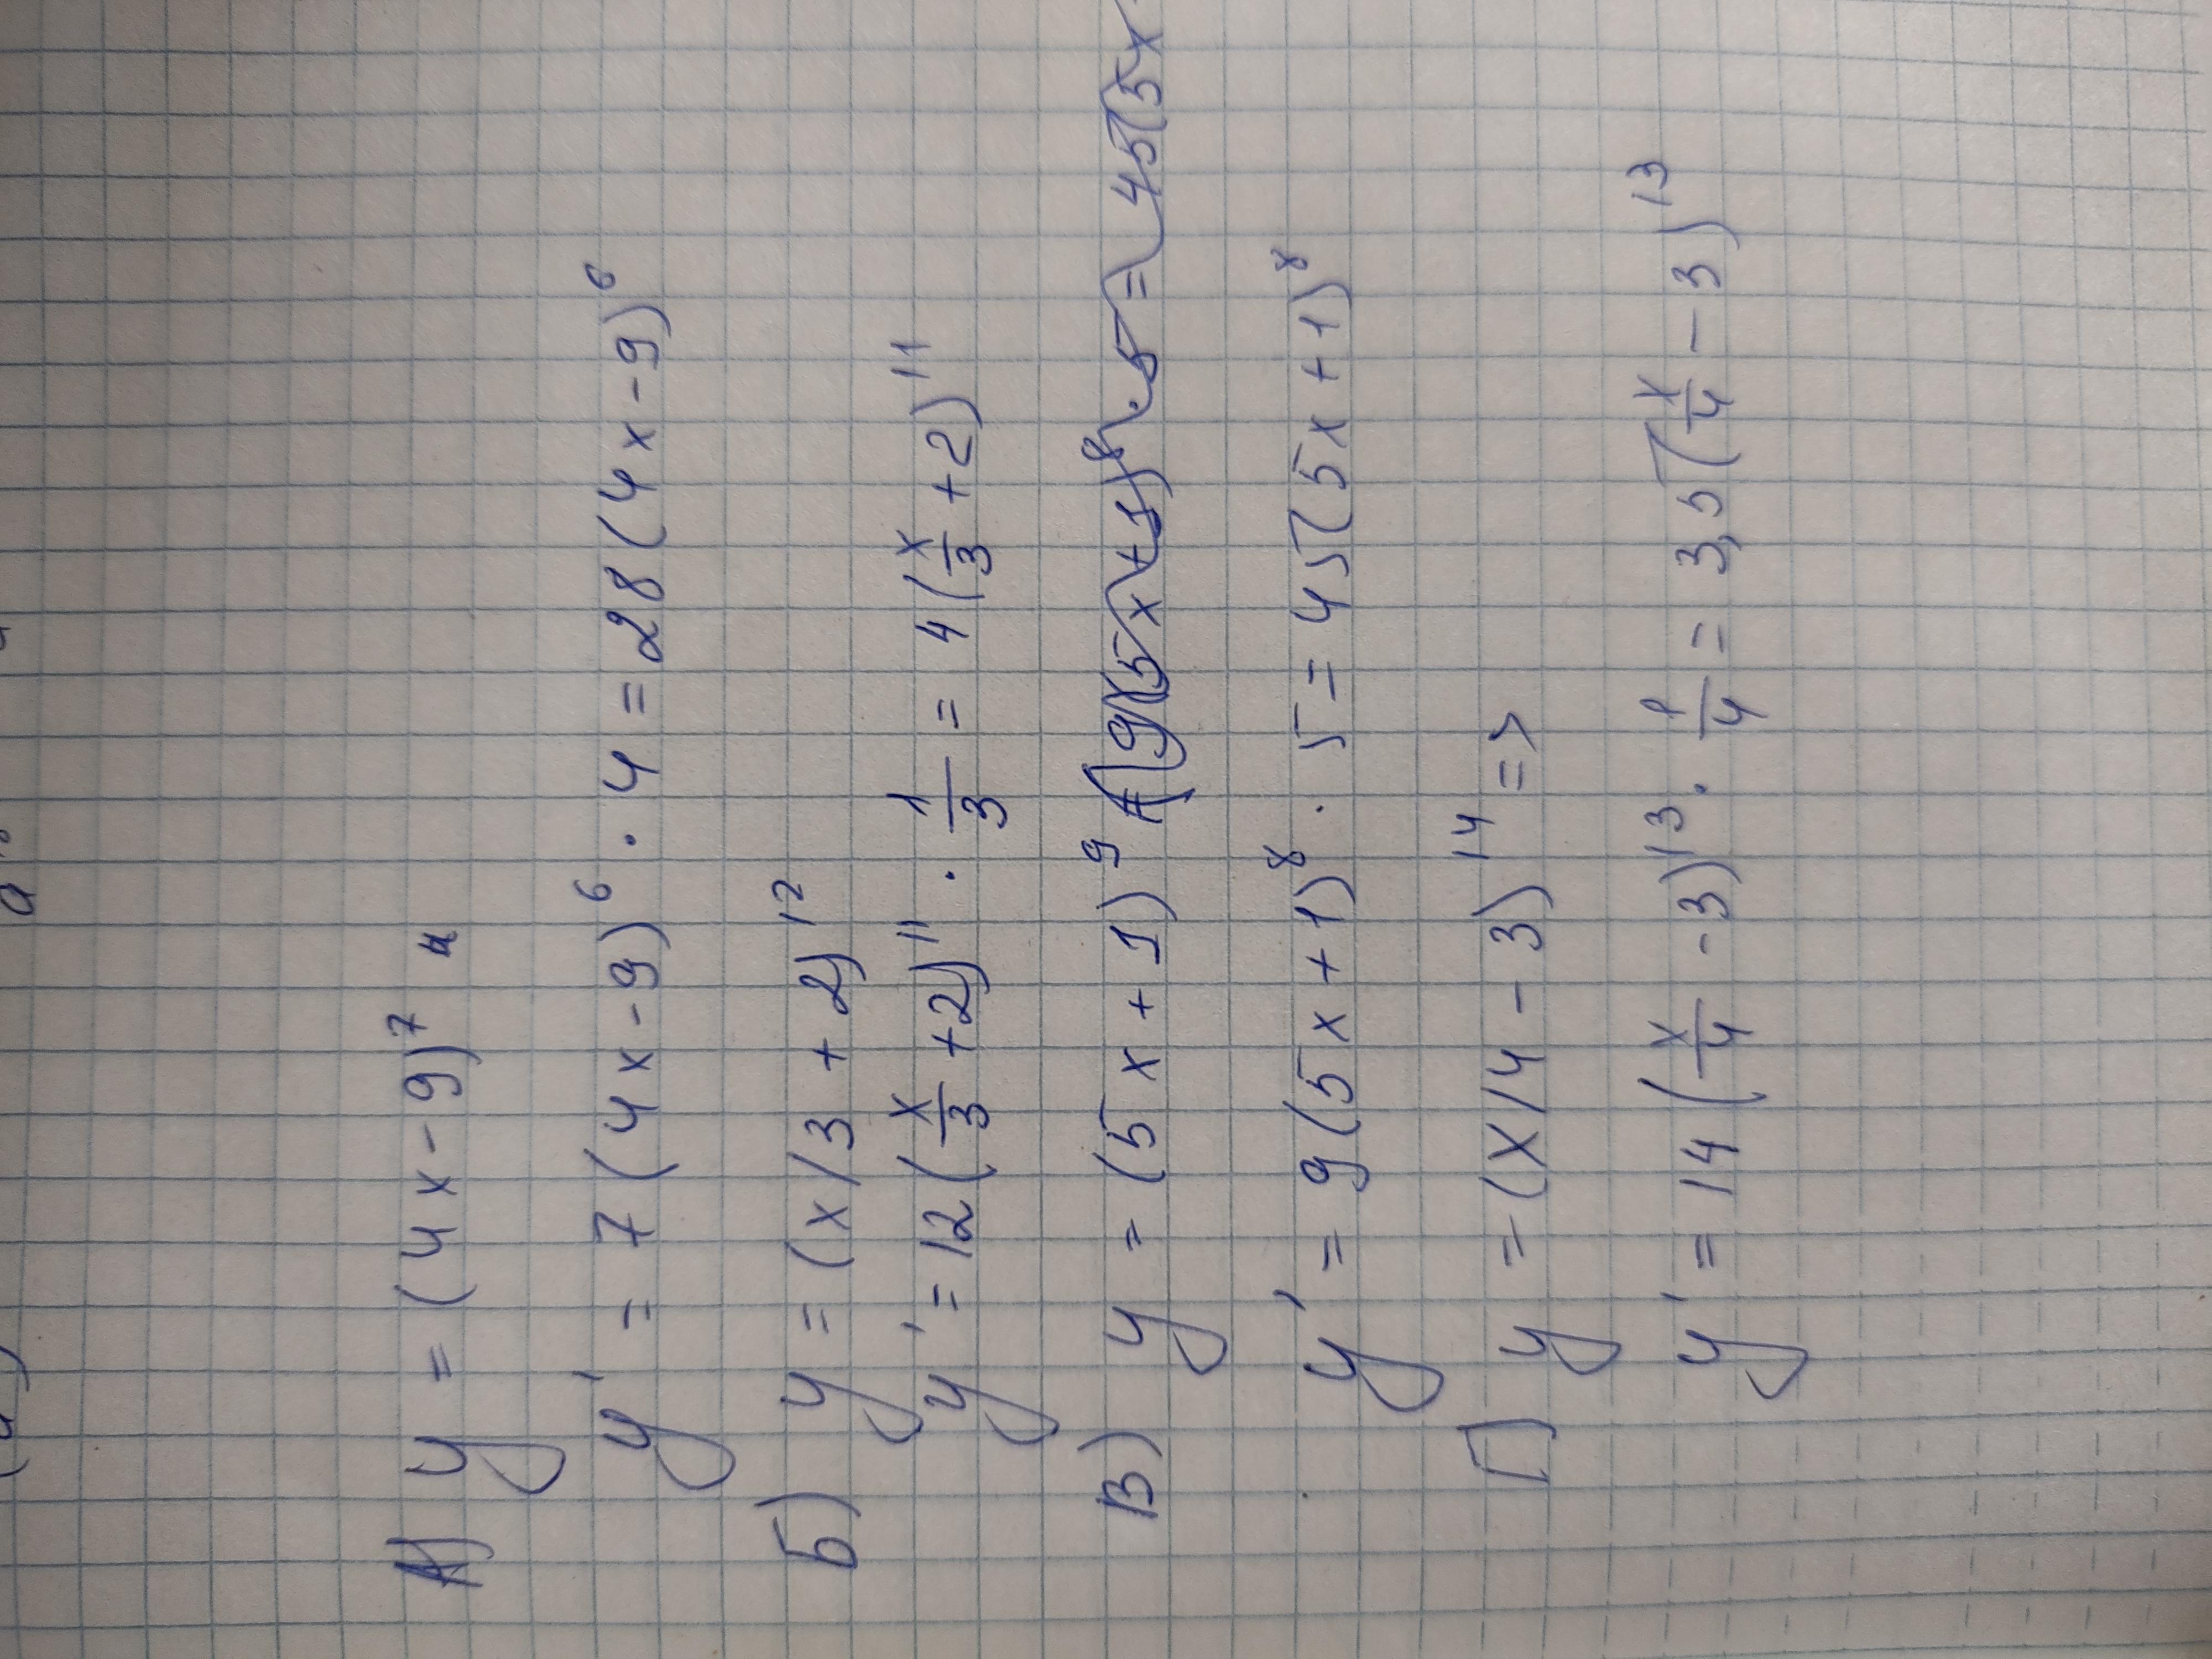 А) y = (4x - 9)⁷
y' = 7(4x - 9)⁶ · 4 = 28(4x - 9)⁶
Б) y = (x/3 + 2)¹²
y' = 12(x/3 + 2)¹¹ · 1/3 = 4(x/3 + 2)¹¹
В) y = (5x + 1)⁹ 9(5x + 1)⁸ · 5 = 45(5x
y' = 9(5x + 1)⁸ · 5 = 45(5x + 1)⁸
Г) y = (x/4 - 3)¹⁴ =>
y' = 14(x/4 - 3)¹³ · 1/4 = 3,5(x/4 - 3)¹³